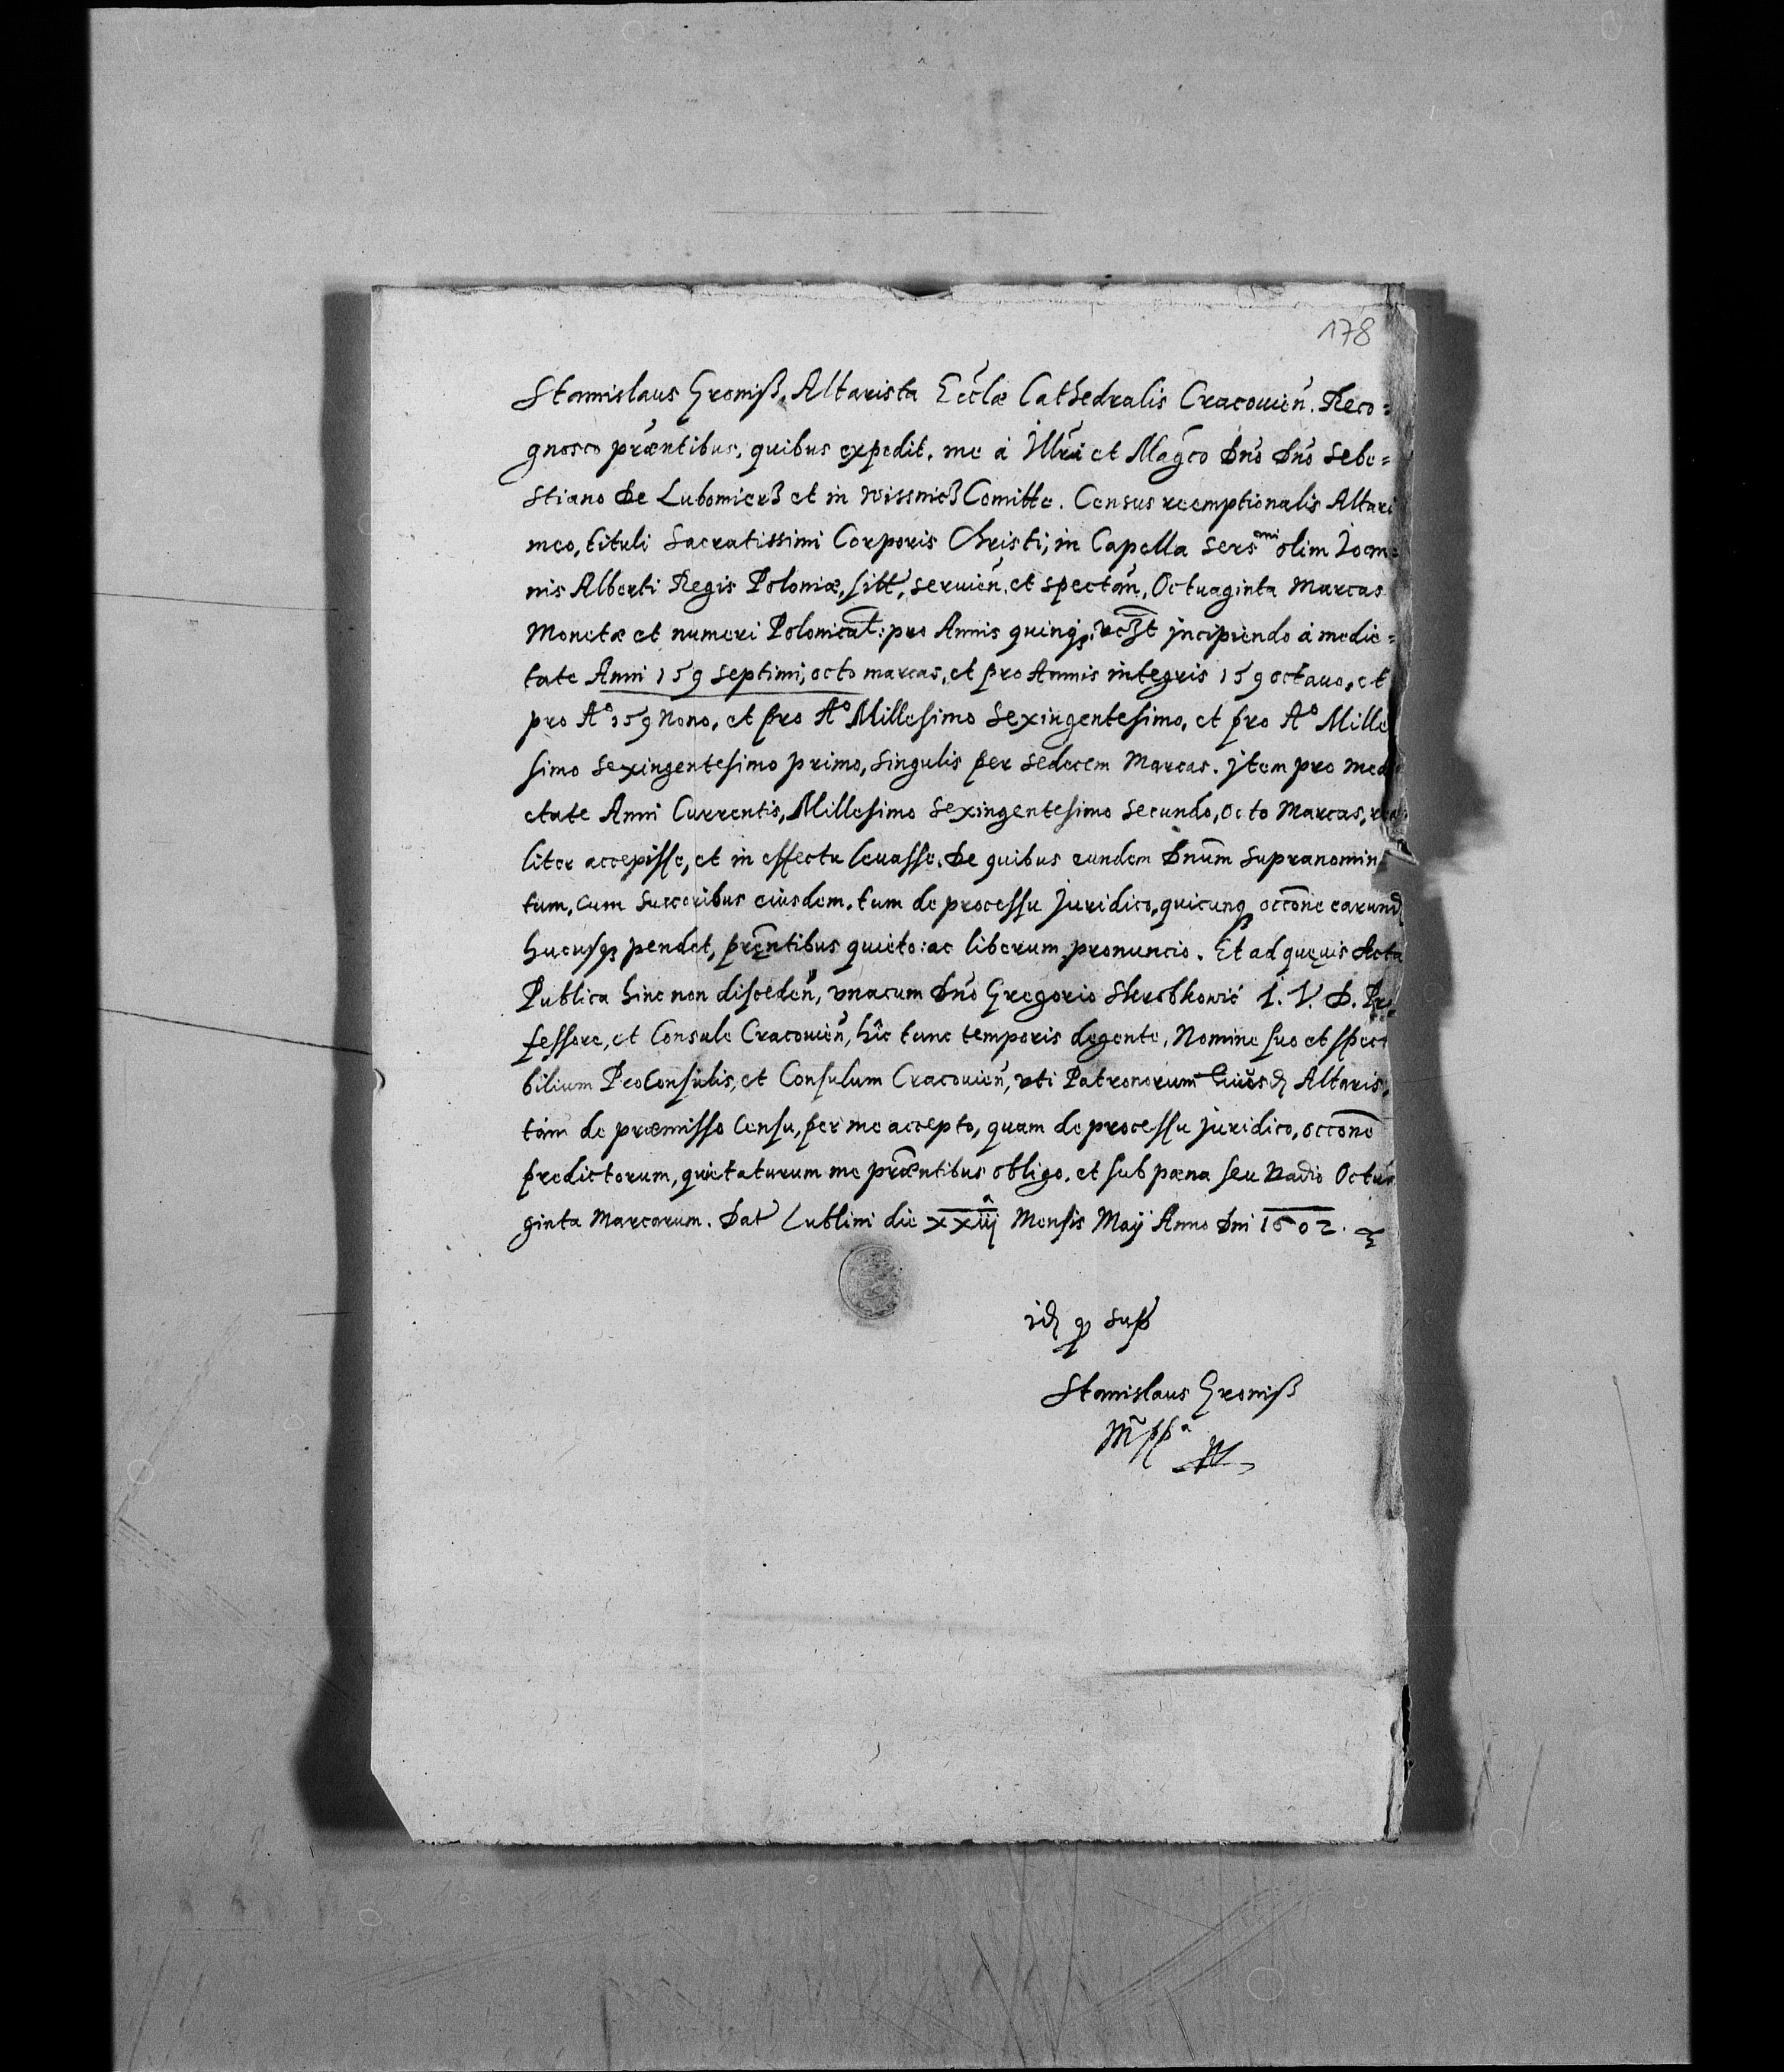 178
Stanislaus Gromiß, Altarista Eccłæ Cathedralis Cracouien̄. Reco=
gnosco præntibus, quibus expedit, me á Illrī et Magco Dno Dno Seba=
stiano De Lubomierz et in Wissnicz Comitte. Census reemptionalis Altari
meo, tituli Sacratissimi Corporis Christi, in Capella Sersmi olim Ioan=
nis Alberti Regis Poloniæ, sitt, seruien̄, et spectan̄, Octuaginta Marcas
Monetæ et numeri Polonicał: pro Annis quinq₃, vczt jncipiendo á medie=
tate Anni 159 septimi, octo marcas, et pro Annis integris 159 octauo, et
pro A° 159 Nono, et pro A° Millesimo Sexingentesimo, et pro A° Mille
simo Sexingentesimo primo, Singulis per Sedecem Marcas. Jtem pro Medi
etate Anni Currentis, Millesimo Sexingentesimo Secundo, Octo Marcas, rea
liter accepisse, et in effectu leuasse. De quibus eundem Dnūm Supranomin
tum, cum Succoribus eiusdem, tum de processu juridico, quicunq₃ occōne earund
hucusq₃ pendet, præntibus quieto: ac liberum pronuncio. Et ad quęuis Acta
Publica hinc non disceden̄, vnacum Dno Gregorio Skrobkowic I. V. D. Pro=
fessore, et Consule Cracouien̄, hîc tunc temporis degente, Nomine suo et spect
bilium ProConsulis, et Consulum Cracouien̄, vti Patronorum Eiusd Altaris,
tam de præmisso Censu, per me accepto, quam de processu juridico, occōne
predictorum, quietaturum me præntibus obligo, et sub pæna seu Vadio Octua
ginta Marcarum. Dat Lublini die xxiij Mensis Maÿ Anno Dni 1602.
id q sup
Stanislaus Gromiß
Mppa